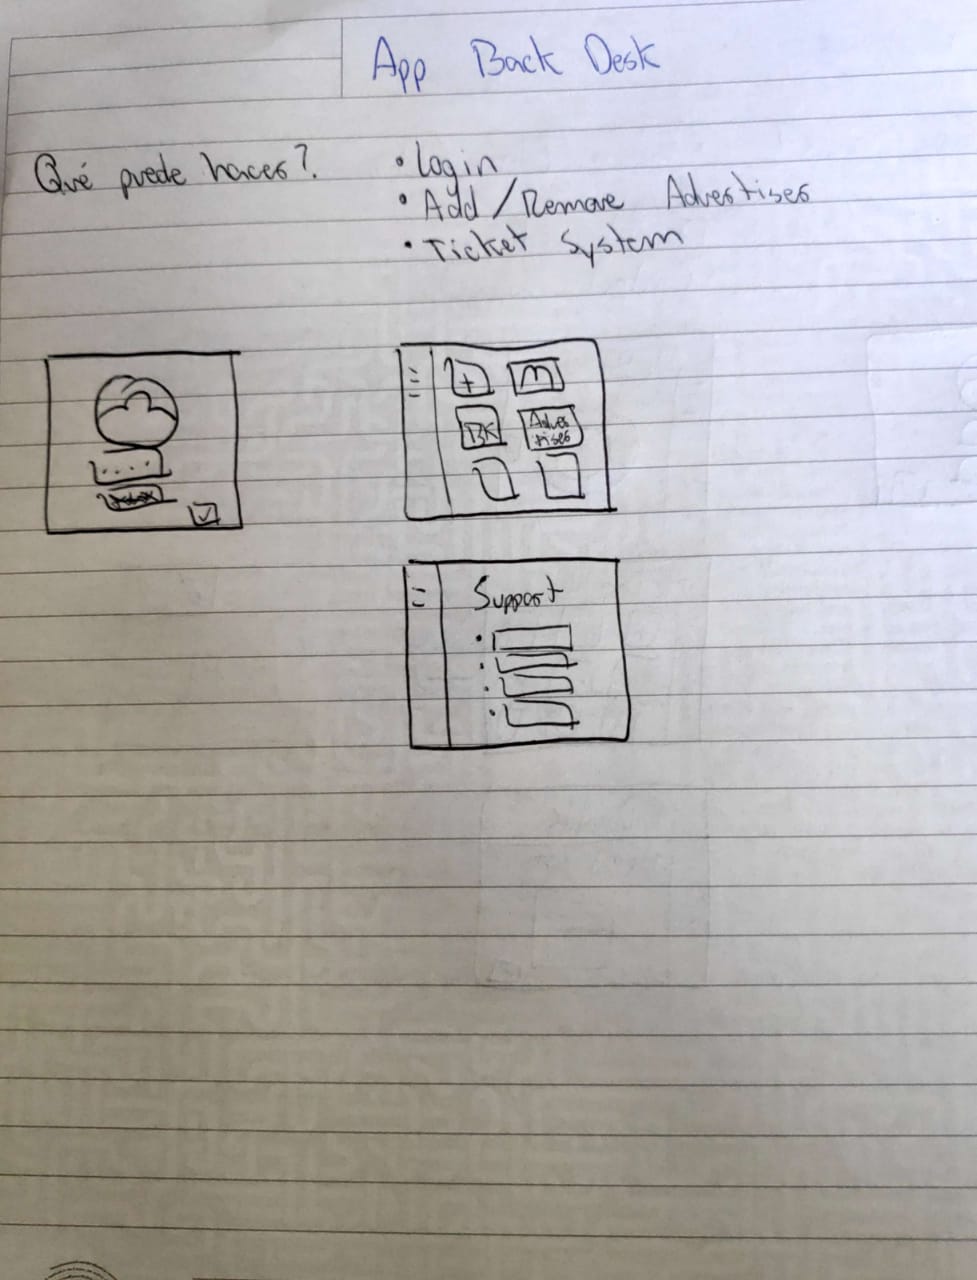 App Back Desk
Qué puede hacer?
• Login
• Add/Remove Advertises
• Ticket System
+ M
BK Adver
tises
Support